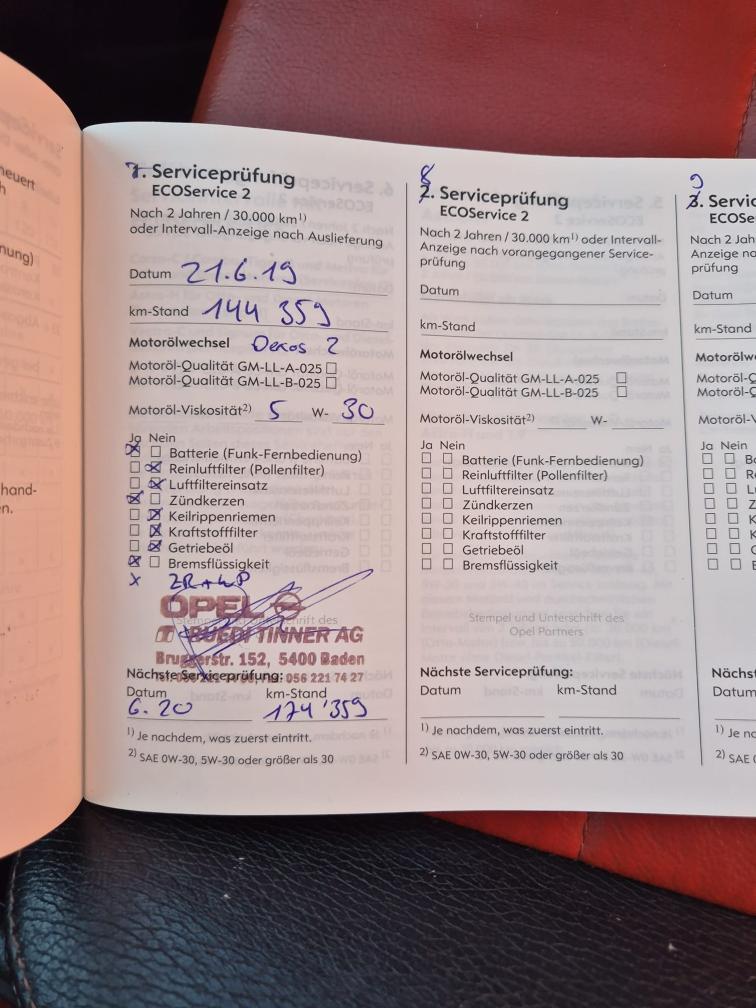 neuert
nung)
hand-
en.
7. Serviceprüfung
ECOService 2
Nach 2 Jahren / 30.000 km1)
oder Intervall-Anzeige nach Auslieferung
Datum 21.6.19
km-Stand 144 359
Motorölwechsel Dexos 2
Motoröl-Qualität GM-LL-A-025
Motoröl-Qualität GM-LL-B-025
Motoröl-Viskosität2) 5 W- 30
Ja Nein
Batterie (Funk-Fernbedienung)
Reinluftfilter (Pollenfilter)
Luftfiltereinsatz
Zündkerzen
Keilrippenriemen
Kraftstofffilter
Getriebeöl
Bremsflüssigkeit
x ZR + WP
OPEL
RUEDI TINNER AG
Bruggerstr. 152, 5400 Baden
Nächste Serviceprüfung: 056 221 74 27
Datum km-Stand
6. 20 174'359
1) Je nachdem, was zuerst eintritt.
2) SAE 0W-30, 5W-30 oder größer als 30
8
2. Serviceprüfung
ECOService 2
Nach 2 Jahren / 30.000 km1) oder Intervall-
Anzeige nach vorangegangener Service-
prüfung
Datum
km-Stand
Motorölwechsel
Motoröl-Qualität GM-LL-A-025
Motoröl-Qualität GM-LL-B-025
Motoröl-Viskosität2) W-
Ja Nein
Batterie (Funk-Fernbedienung)
Reinluftfilter (Pollenfilter)
Luftfiltereinsatz
Zündkerzen
Keilrippenriemen
Kraftstofffilter
Getriebeöl
Bremsflüssigkeit
Stempel und Unterschrift des
Opel Partners
Nächste Serviceprüfung:
Datum km-Stand
1) Je nachdem, was zuerst eintritt.
2) SAE 0W-30, 5W-30 oder größer als 30
9
3. Servic
ECOSe
Nach 2 Jah
Anzeige na
prüfung
Datum
km-Stand
Motorölw
Motoröl-Q
Motoröl-Q
Motoröl-V
Ja Nein
Ba
Re
Lu
Z
K
K
G
B
Nächst
Datum
1) Je nac
2) SAE 0